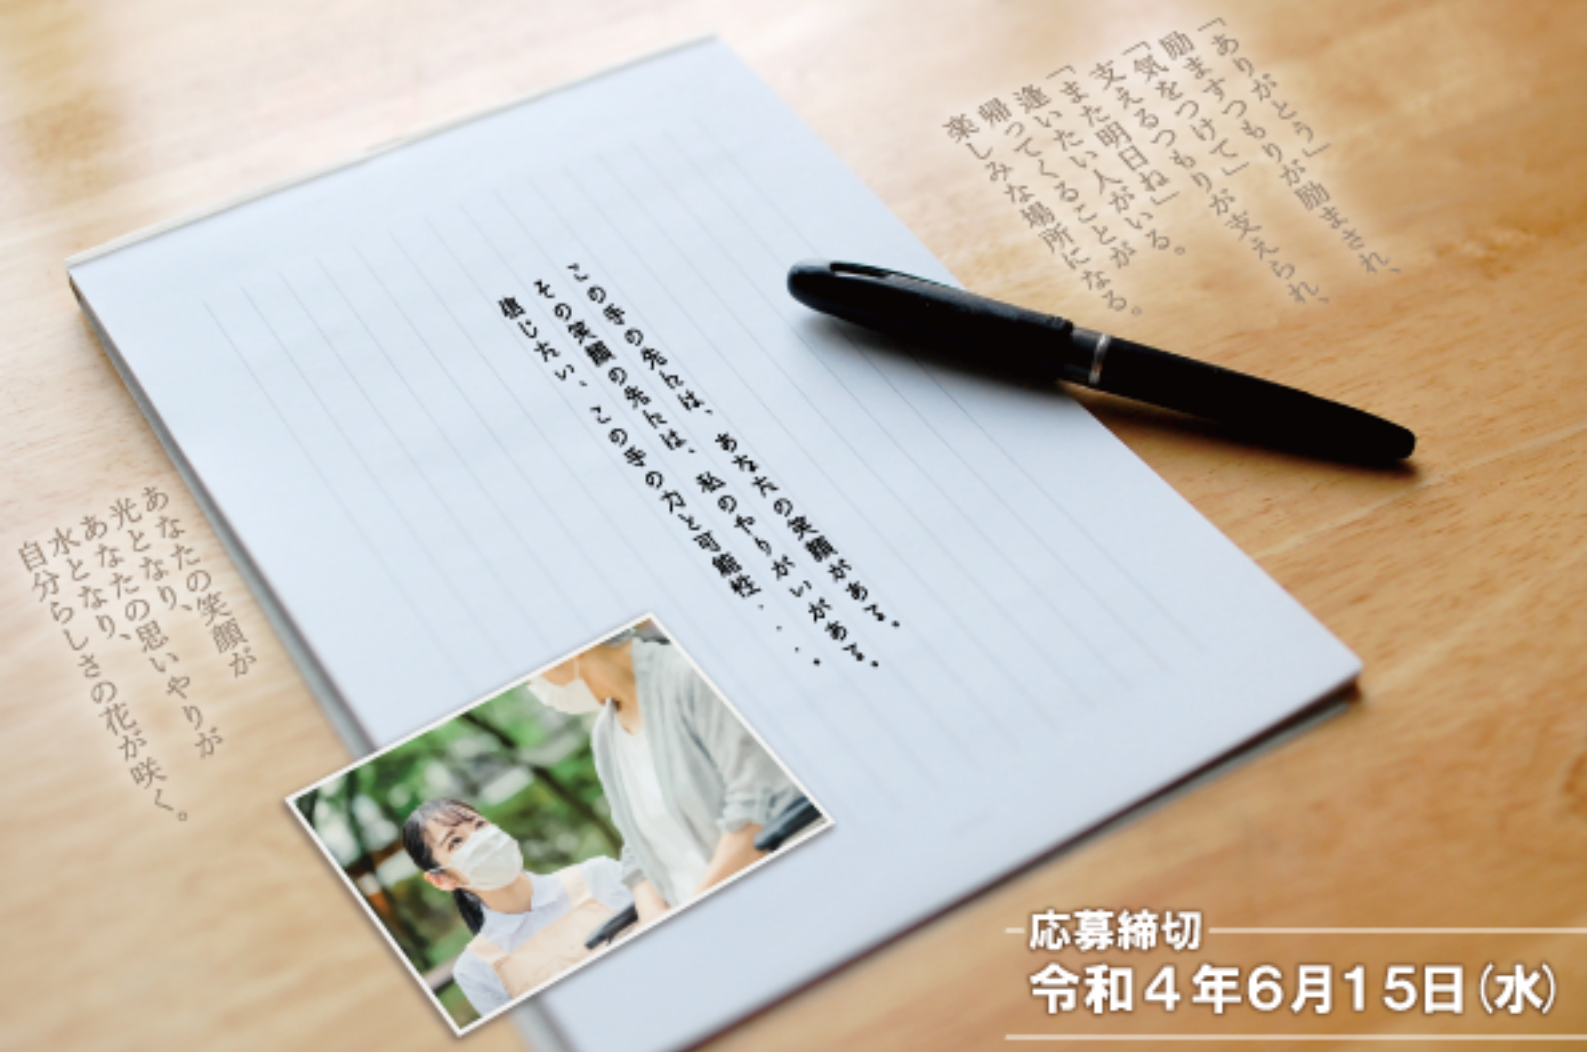 「ありがとう」
励ますつもりが励まされ、
「気をつけて」
支えるつもりが支えられ、
「また明日ね」
逢いたい人がいる。
帰ってくることが
楽しみな場所になる。
この手の先には、あなたの笑顔がある。
その笑顔の先には、私のやりがいがある。
信じたい、この手の力と可能性・・・。
あなたの笑顔が
光となり、
あなたの思いやりが
水となり、
自分らしさの花が咲く。
応募締切
令和4年6月15日(水)